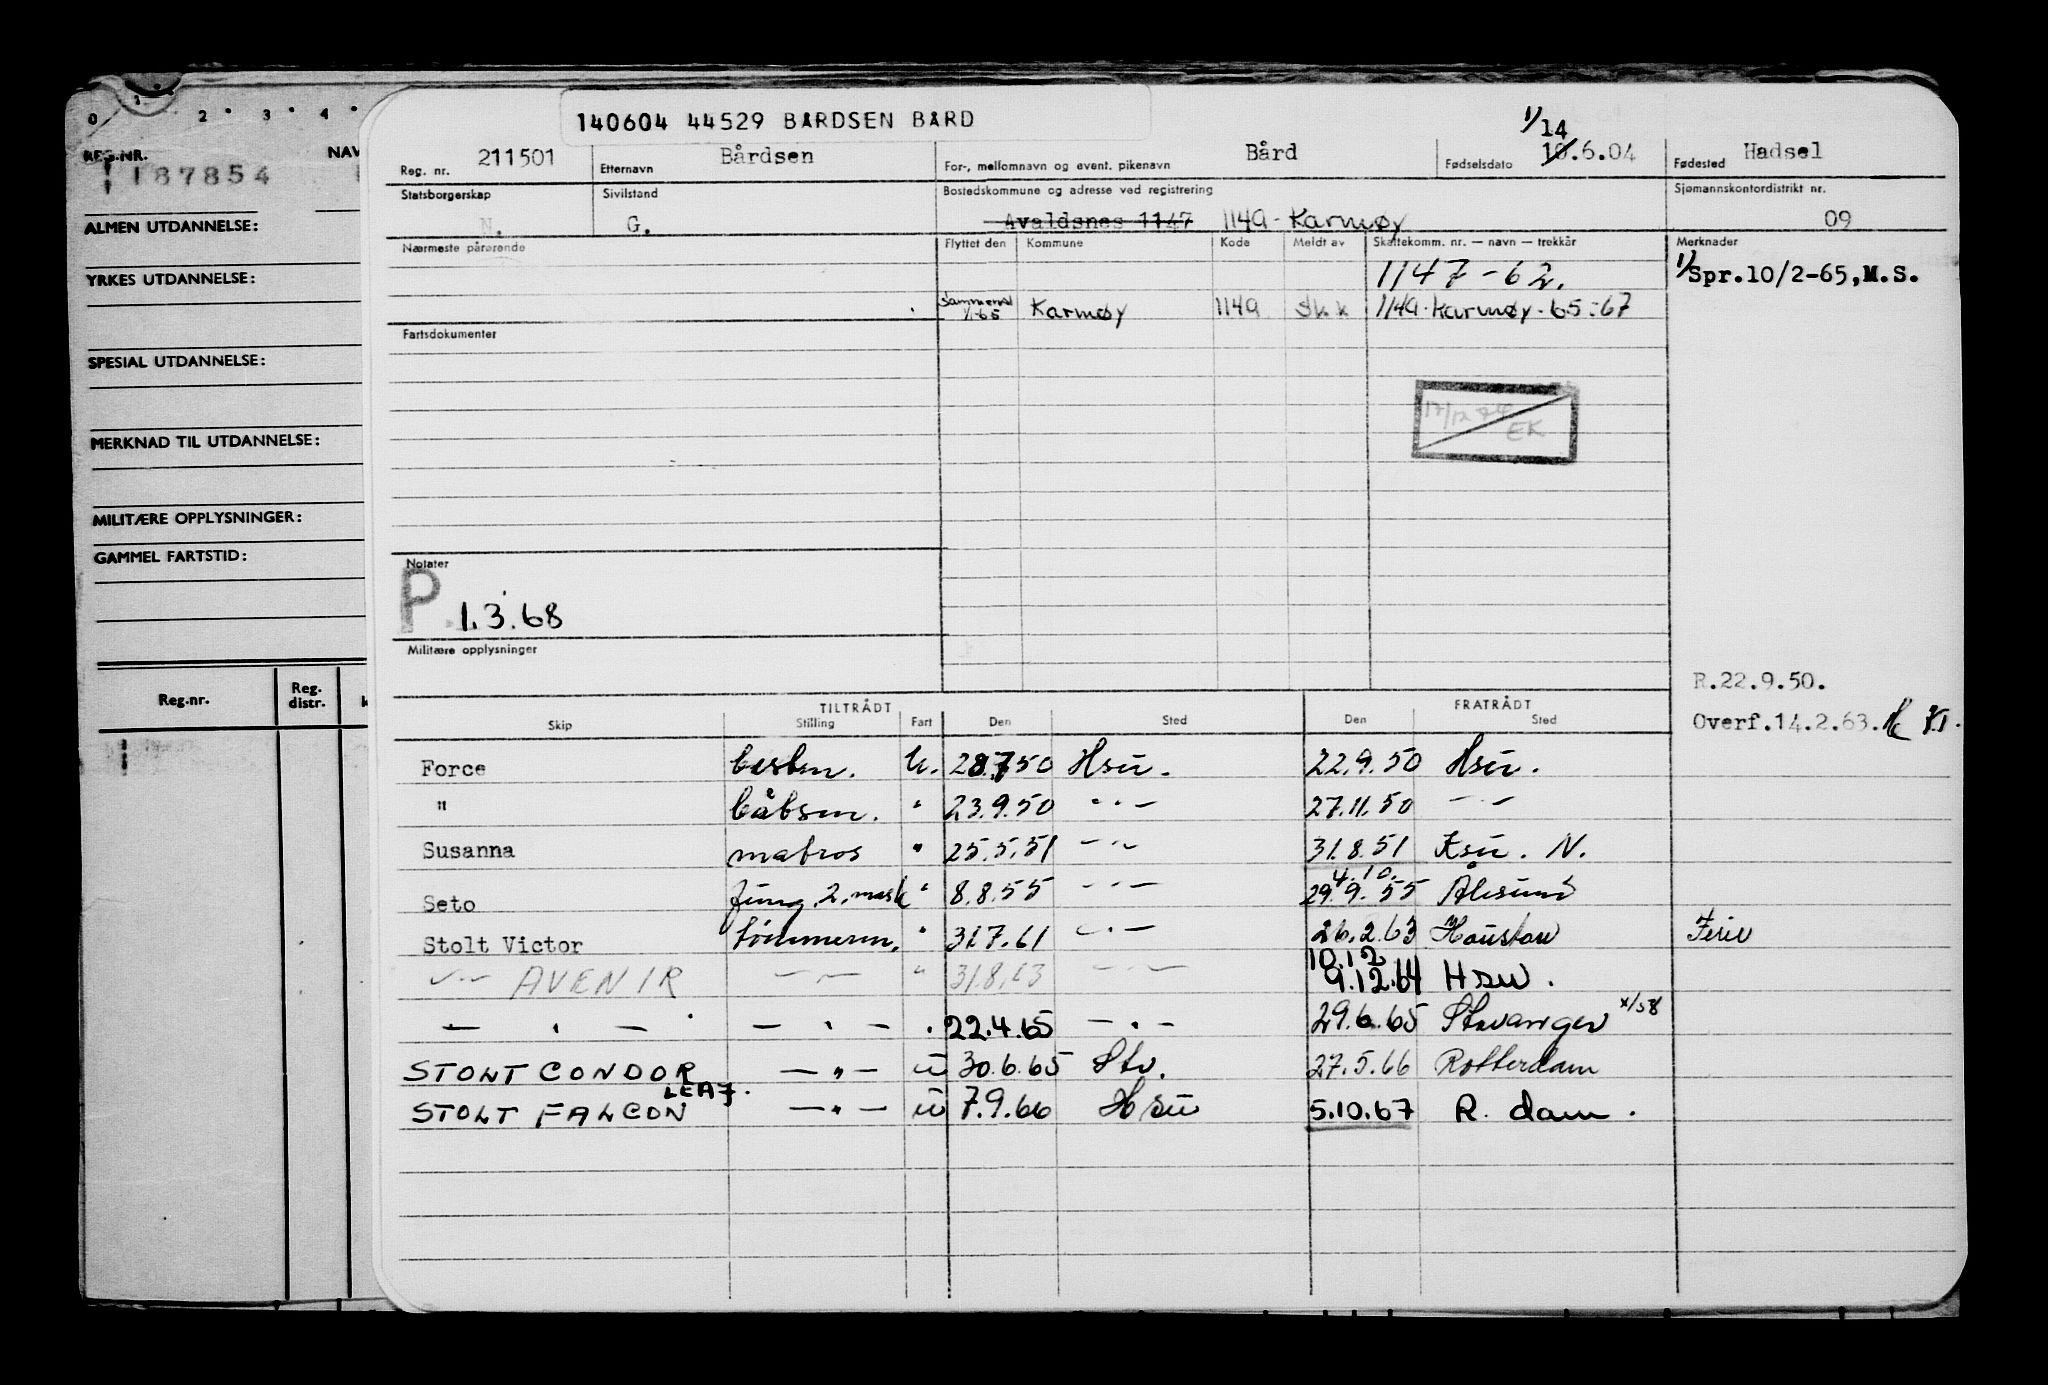 0 1 2 3 4
REG.NR. NAV
187854
ALMEN UTDANNELSE:
YRKES UTDANNELSE:
SPESIAL UTDANNELSE:
MERKNAD TIL UTDANNELSE:
MILITÆRE OPPLYSNINGER:
GAMMEL FARTSTID:
Reg.nr. Reg. distr.
140604 44529 BÅRDSEN BÅRD
Reg. nr. 211501 Etternavn Bårdsen For-, mellomnavn og event. pikenavn Bård Fødselsdato 1/ 14 10.6.04 Fødested Hadsel
Statsborgerskap Sivilstand Bostedskommune og adresse ved registrering Sjømannskontordistrikt nr.
N. G. Avaldsnes 1147 1149 - Karmøy 09
Nærmeste pårørende Flyttet den Kommune Kode Meldt av Skattekomm. nr. — navn — trekkår Merknader
1147 - 62. 1/Spr.10/2-65,M.S.
Sammensl 1/1-65 Karmøy 1149 Skk 1149 - Karmøy - 65-67
Fartsdokumenter
17/12 74 EK
Notater
P 1.3.68
Militære opplysninger
R.22.9.50.
Overf.14.2.63.
TILTRÅDT FRATRÅDT
Skip Stilling Fart Den Sted Den Sted
Force U. 28.7.50 Hsu. 22.9.50 Hsu.
" båtsm. " 23.9.50 — " — 27.11.50 — " —
Susanna matros " 25.5.51 — " — 31.8.51 Ksu. N.
4.10.
Seto Jung. 2. mask " 8.8.55 — " — 29.9.55 Ålesund
Stolt Victor tömmerm. " 31.7.61 — " — 26.2.63 Houston Ferie
10.12
— " — AVENIR — " — " 31.8.63 — " — 9.12.64 Hsu.
— " — — " — " 22.4.65 — " — 29.6.65 Stavanger x/58
STOLT CONDOR — " — u 30.6.65 Stv. 27.5.66 Rotterdam
LEA7.
STOLT FALCON — " — u 7.9.66 Hsu 5.10.67 R. dam.